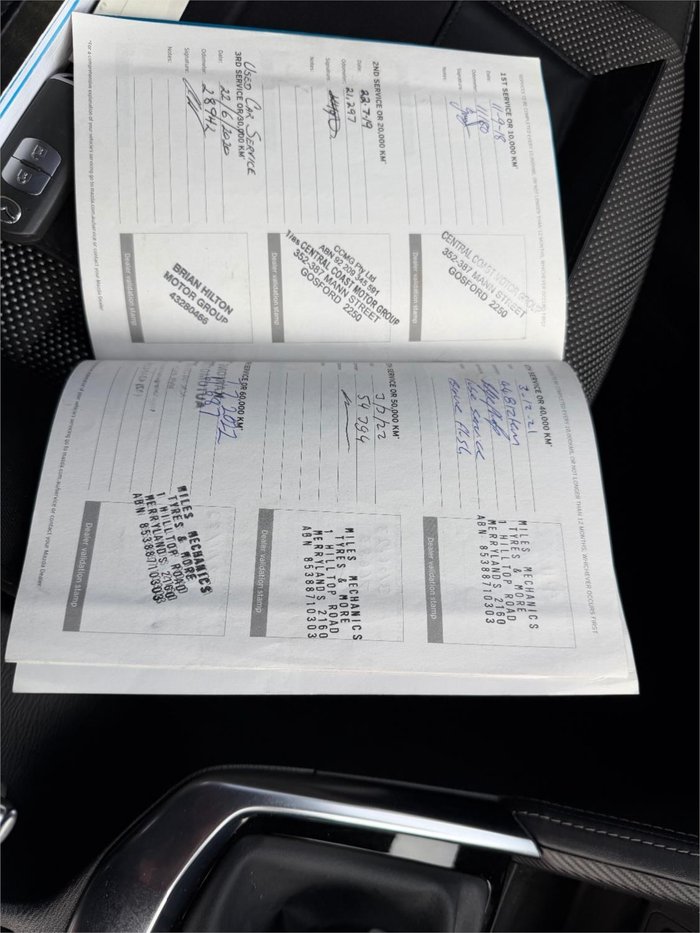 SERVICES TO BE COMPLETED EVERY 10,000KMS, OR NOT LONGER THAN 12 MONTHS, WHICHEVER OCCURS FIRST
1ST SERVICE OR 10,000 KM*
Date: 11-9-18
Odometer: 11180
Signature:
Notes:
CENTRAL COAST MOTOR GROUP
352-387 MANN STREET
GOSFORD 2250
Dealer validation stamp
2ND SERVICE OR 20,000 KM*
Date: 22-7-19
Odometer: 21,297
Signature:
Notes:
CCMG Pty Ltd
ABN 92 209 345 591
T/as CENTRAL COAST MOTOR GROUP
352-387 MANN STREET
GOSFORD 2250
Dealer validation stamp
USED CAR SERVICE
3RD SERVICE OR 30,000 KM*
Date: 22/6/2020
Odometer: 28942
Signature:
Notes:
BRIAN HILTON
MOTOR GROUP
43280466
Dealer validation stamp
*For a comprehensive explanation of your vehicle's servicing go to mazda.com.au/service or contact your Mazda Dealer
COMPLETED EVERY 10,000KMS, OR NOT LONGER THAN 12 MONTHS, WHICHEVER OCCURS FIRST
SERVICE OR 40,000 KM*
3-12-21
44812km
service
MILES MECHANICS
TYRES & MORE
1 HILLTOP ROAD
MERRYLANDS 2160
ABN: 85388710303
Dealer validation stamp
SERVICE OR 50,000 KM*
54394
MILES MECHANICS
TYRES & MORE
1 HILLTOP ROAD
MERRYLANDS 2160
ABN: 85388710303
Dealer validation stamp
SERVICE OR 60,000 KM*
MILES MECHANICS
TYRES & MORE
1 HILLTOP ROAD
MERRYLANDS 2160
ABN: 85388710303
Dealer validation stamp
of your vehicle's servicing go to mazda.com.au/service or contact your Mazda Dealer